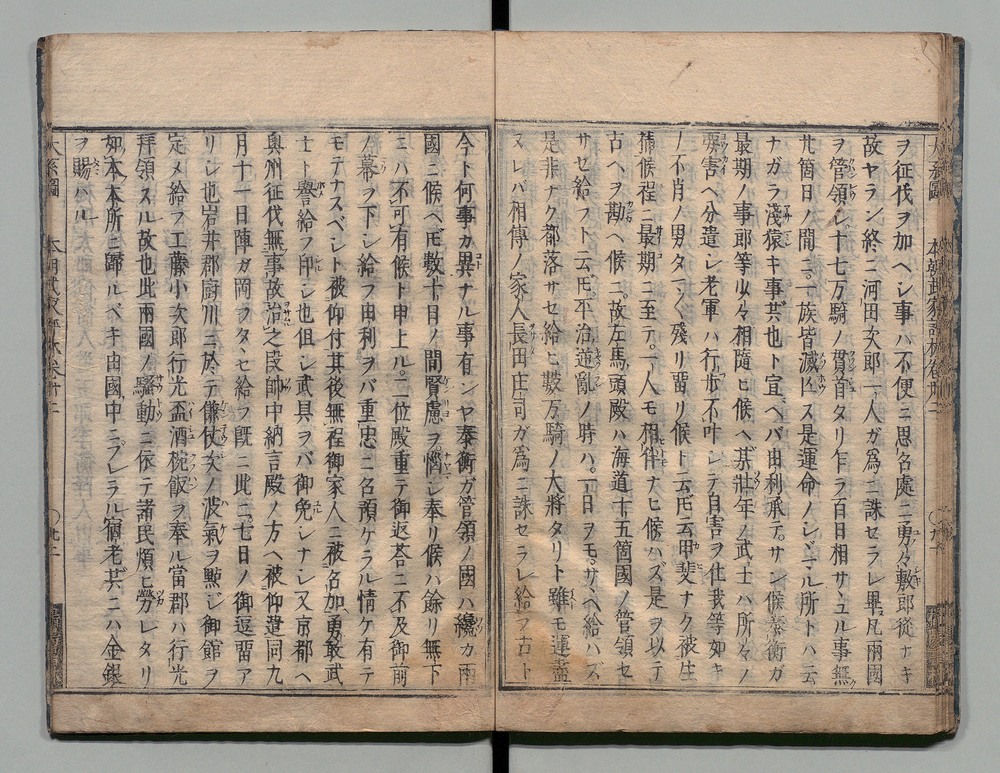 ヲ征伐ヲ加ヘシ事ハ不便ニ思名處ニ勇々敷郎從ナキ
故ヤラン終ニ河田次郎一人ガ爲ニ誅セラレ畢凡兩國
ヲ管領シ十七万騎ノ貫首タリ乍ラ百日相サヽユル事無
廿箇日ノ間ニ一族皆滅亡ス是運命ノシヾマル所トハ云
ナガラ淺猿キ事共也ト宣ヘバ由利承テサン候泰衡ガ
最期ノ事郎等少々相隨ヒ候ヘ共壯年ノ武士ハ所々ノ
要害ヘ分遣シ老軍ハ行歩不叶シテ自害ヲ仕我等如キ
ノ不肖ノ男タマ〳〵殘リ留リ候ト云ヘ𪜈云甲斐ナク被生
捕候程ニ最期ニ至テ一人モ相伴ナヒ候ハズ是ヲ以テ
古ヘヲ勘ヘ候ニ故左馬頭殿ハ海道十五箇國ノ管領セ
サセ給フト云𪜈平治逆亂ノ時ハ一日ヲモサヽヘ給ハズ
是非ナク都落サセ給ヒ數万騎ノ大將タリト雖モ運盡
ヌレバ相傳ノ家人長田庄司ガ爲ニ誅セラレ給フ古ト
今ト何事カ異ナル事有ンヤ泰衡ガ管領ノ國ハ纔カ兩
國ニ候ヘ𪜈數十日ノ間賢慮ヲ惱シ奉リ候ハ餘リ無下
ニハ不可有候ト申上ル二位殿重テ御返荅ニ不及御前
ノ幕ヲ下シ給フ由利ヲバ重忠ニ名預ケラル情ケ有テ
モテナスベシト被仰付其後無程御家人ニ被名加勇敢武
士ト譽給フ印シ也但シ武具ヲバ御免シナシ又京都ヘ
奥州征伐無事故治之段帥中納言殿ノ方ヘ被仰遣同九
月十一日陣ガ岡ヲタヽセ給フ既ニ此ニ七日ノ御逗留ア
リシ也岩井郡厨川ニ於テ傔仗次ノ波氣ヲ點ジ御館ヲ
定メ給フ工藤小次郎行光盃酒椀飯ヲ奉ル當郡ハ行光
拜領スル故也此兩國ノ騷動ニ依テ諸民煩ヒ勞カレタリ
如本本所ニ歸ルベキ由國中ニフレラル宿老共ニハ金銀
ヲ賜ハル